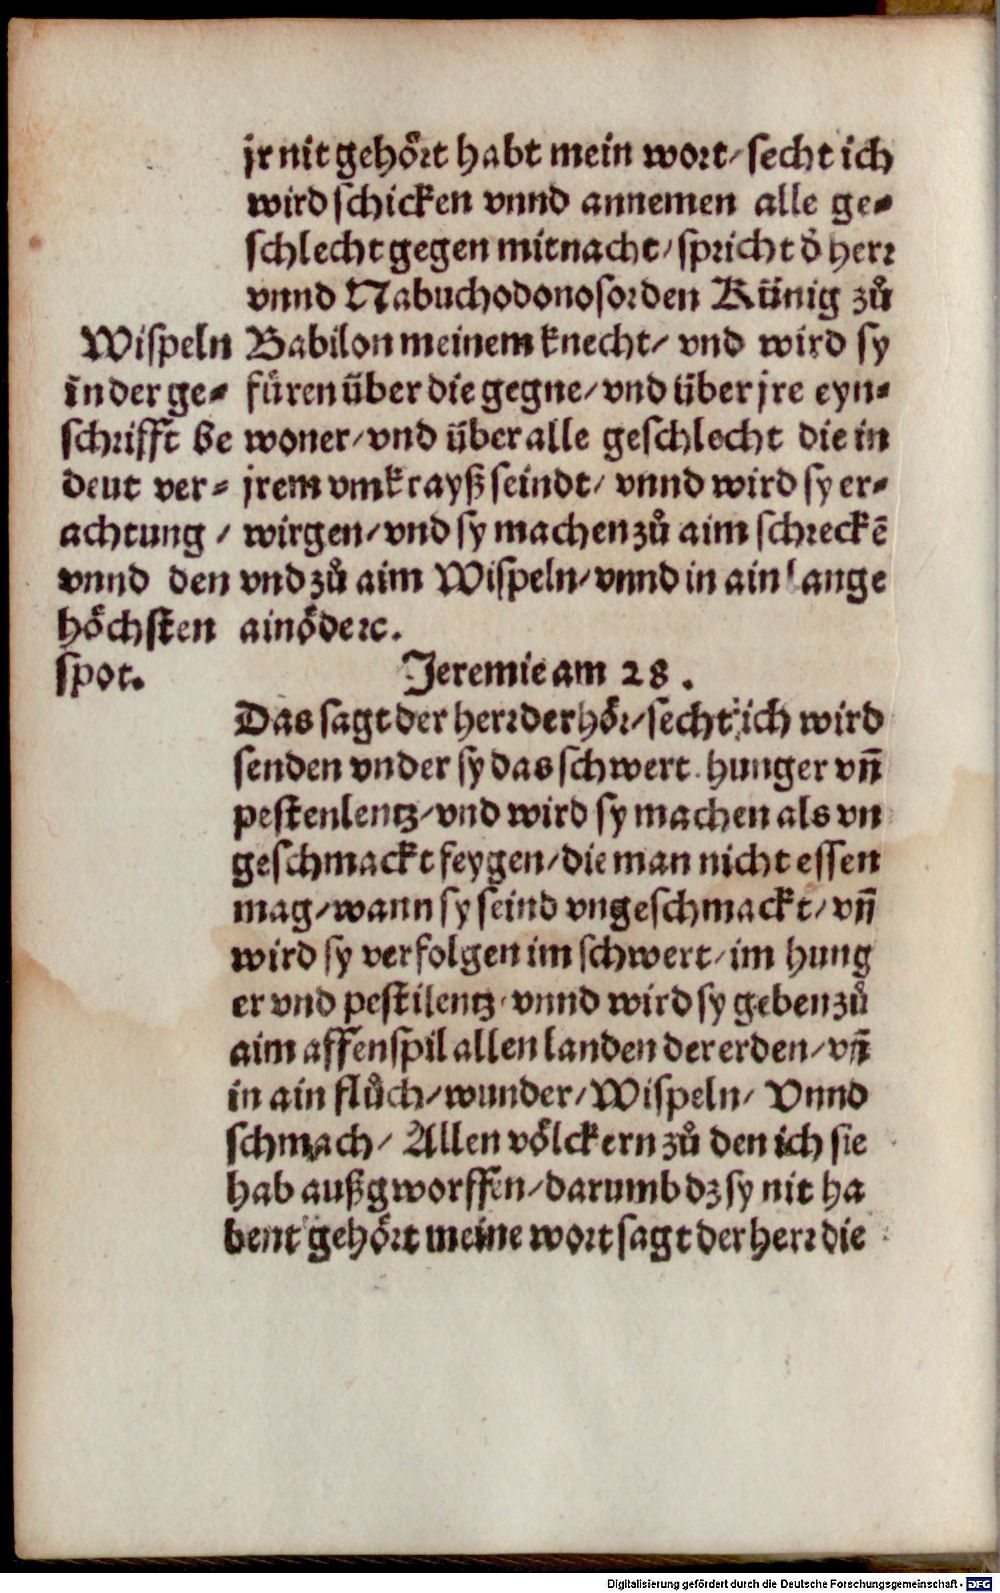 jr nit gehoͤrt habt mein wort / secht ich
wird schicken vnnd annemen alle ge⸗
schlecht gegen mitnacht / spricht d̕ herr
vnnd Nabuchodonosor den Kuͤnig zuͦ
Babilon meinem knecht / vnd wird sy
fuͤren uͤber die gegne / vnd uͤber jre eyn⸗
woner / vnd uͤber alle geschlecht die in
jrem vmkrayß seindt / vnnd wird sy er⸗
wirgen / vnd sy machen zuͦ aim schreckē
vnd zuͦ aim Wispeln / vnnd in ain lange
ainoͤde ꝛc.
Wispeln
in der ge⸗
schrifft be
deut ver⸗
achtung /
vnnd den
hoͤchsten
spot.
Jeremie am 28.
Das sagt der herr der hoͤr / secht ich wird
senden vnder sy das schwert. hunger vn̄
pestenlentz / vnd wird sy machen als vn
geschmackt feygen / die man nicht essen
mag / wann sy seind vngeschmackt / vn̄
wird sy verfolgen im schwert / im hung
er vnd pestilentz / vnnd wird sy geben zuͦ
aim affenspil allen landen der erden / vn̄
in ain fluͦch / wunder / Wispeln / Vnnd
schmach / Allen voͤlckern zuͦ den ich sie
hab außgworffen / darumb dz sy nit ha
bent gehoͤrt meine wort sagt der herr die
Digitalisierung gefördert durch die Deutsche Forschungsgemeinschaft - DFG